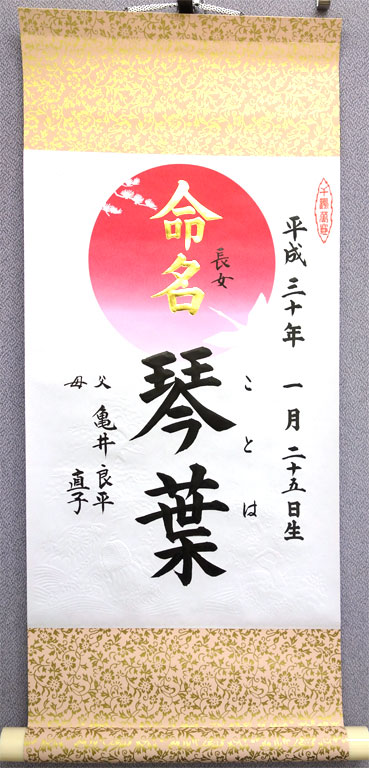 平成三十年 一月二十五日生
命名
長女
ことは
琴葉
父 亀井良平
母 直子